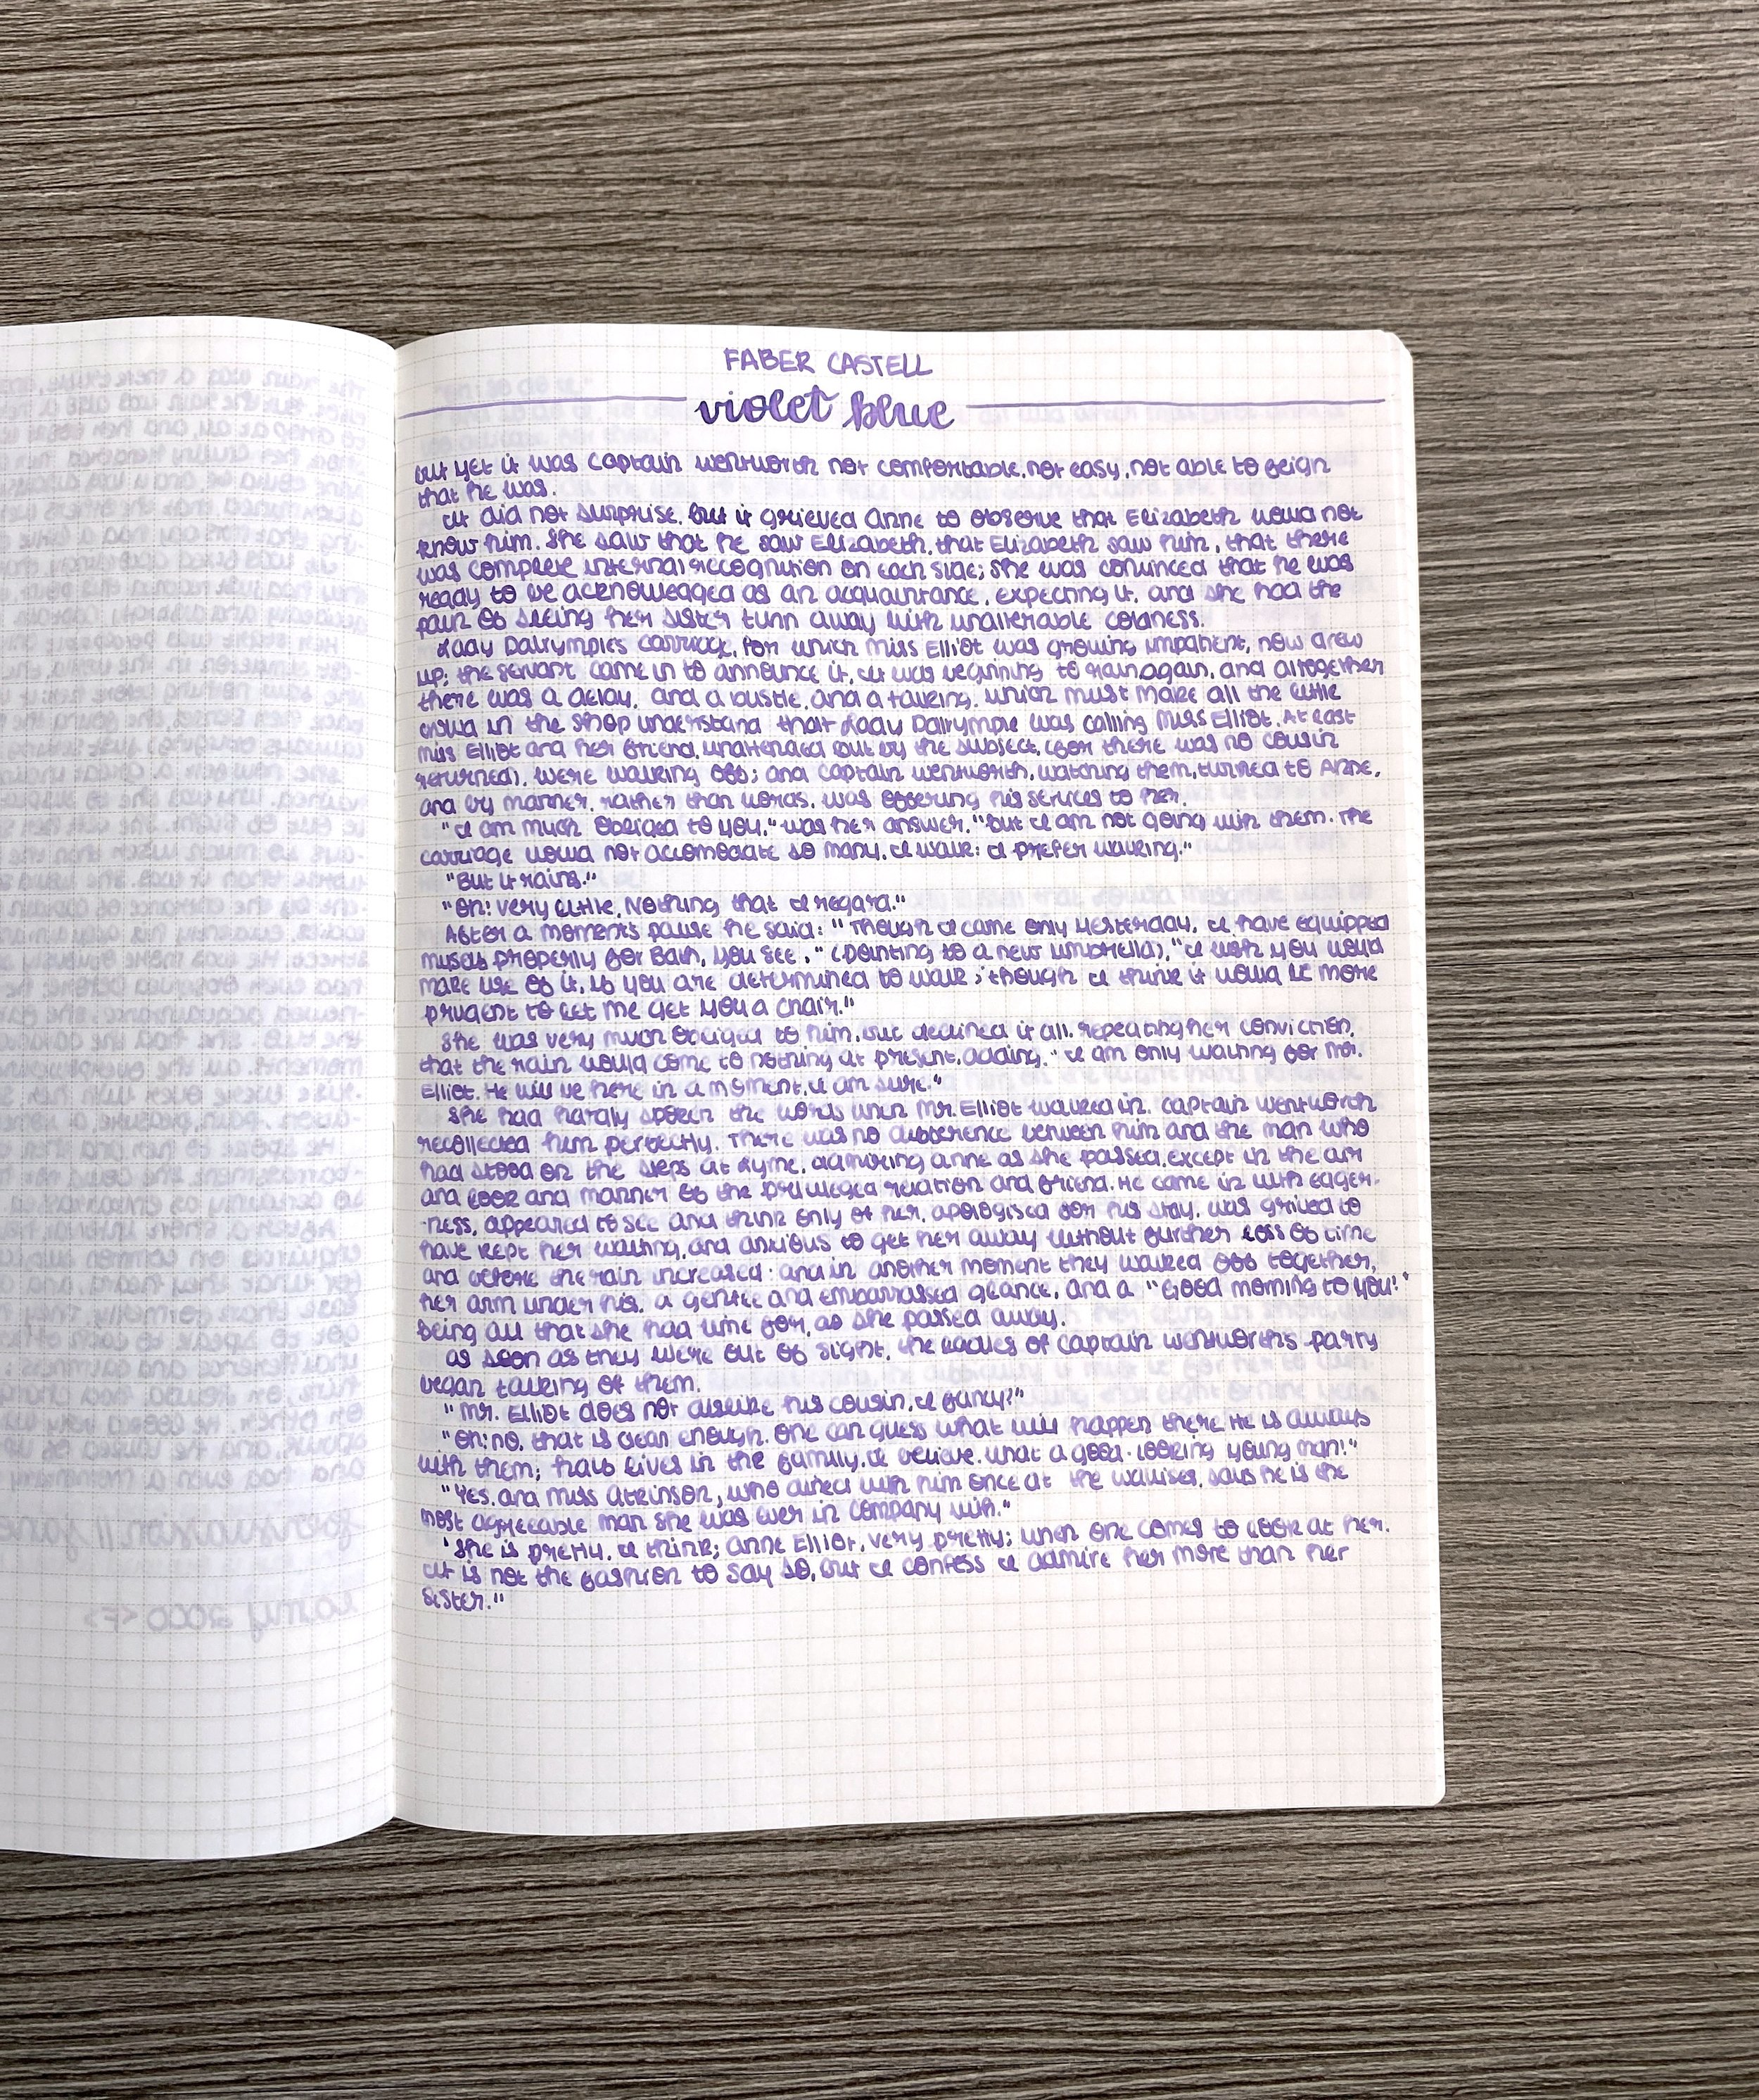 FABER CASTELL
violet blue
but yet it was Captain Wentworth not comfortable, not easy, not able to feign
that he was.
It did not surprise, but it grieved Anne to observe that Elizabeth would not
know him. She saw that he saw Elizabeth, that Elizabeth saw him, that there
was complete internal recognition on each side; she was convinced that he was
ready to be acknowledged as an acquaintance, expecting it, and she had the
pain of seeing her sister turn away with unalterable coldness.
Lady Dalrymple's carriage, for which Miss Elliot was growing impatient, now drew
up; the servant came in to announce it. It was beginning to rain again, and altogether
there was a delay, and a bustle, and a talking, which must make all the little
crowd in the shop understand that Lady Dalrymple was calling Miss Elliot. At last
Miss Elliot and her friend, unattended but by the subject, (for there was no cousin
returned), were walking off; and Captain Wentworth, watching them, turned to Anne,
and by manner, rather than words, was offering his services to her.
"I am much obliged to you," was her answer, "but I am not going with them. The
carriage would not accomodate so many. I walk: I prefer walking."
"But it rains."
"Oh! very little. Nothing that I regard."
After a moment's pause he said: "Though I came only yesterday, I have equipped
myself properly for Bath, you see," (pointing to a new umbrella), "I wish you would
make use of it, if you are determined to walk; though I think it would be more
prudent to let me get you a chair."
She was very much obliged to him, but declined it all, repeating her conviction,
that the rain would come to nothing at present, adding, "I am only waiting for Mr.
Elliot. He will be here in a moment, I am sure."
She had hardly spoken the words when Mr. Elliot walked in. Captain Wentworth
recollected him perfectly. There was no difference between him and the man who
had stood on the steps at Lyme, admiring Anne as she passed, except in the air
and look and manner of the privileged relation and friend. He came in with eager-
-ness, appeared to see and think only of her, apologised for his stay, was grieved to
have kept her waiting, and anxious to get her away without further loss of time
and before the rain increased; and in another moment they walked off together,
her arm under his, a gentle and embarrassed glance, and a "Good morning to you!"
being all that she had time for, as she passed away.
As soon as they were out of sight, the ladies of Captain Wentworth's party
began talking of them.
"Mr. Elliot does not dislike his cousin, I fancy?"
"Oh! no, that is clear enough. One can guess what will happen there. He is always
with them; half lives in the family, I believe. What a good-looking young man!"
"Yes, and Miss Atkinson, who dined with him once at the Wallises, says he is the
most agreeable man she was ever in company with."
"She is pretty, I think; Anne Elliot, very pretty; when one comes to look at her.
It is not the fashion to say so, but I confess I admire her more than her
sister."